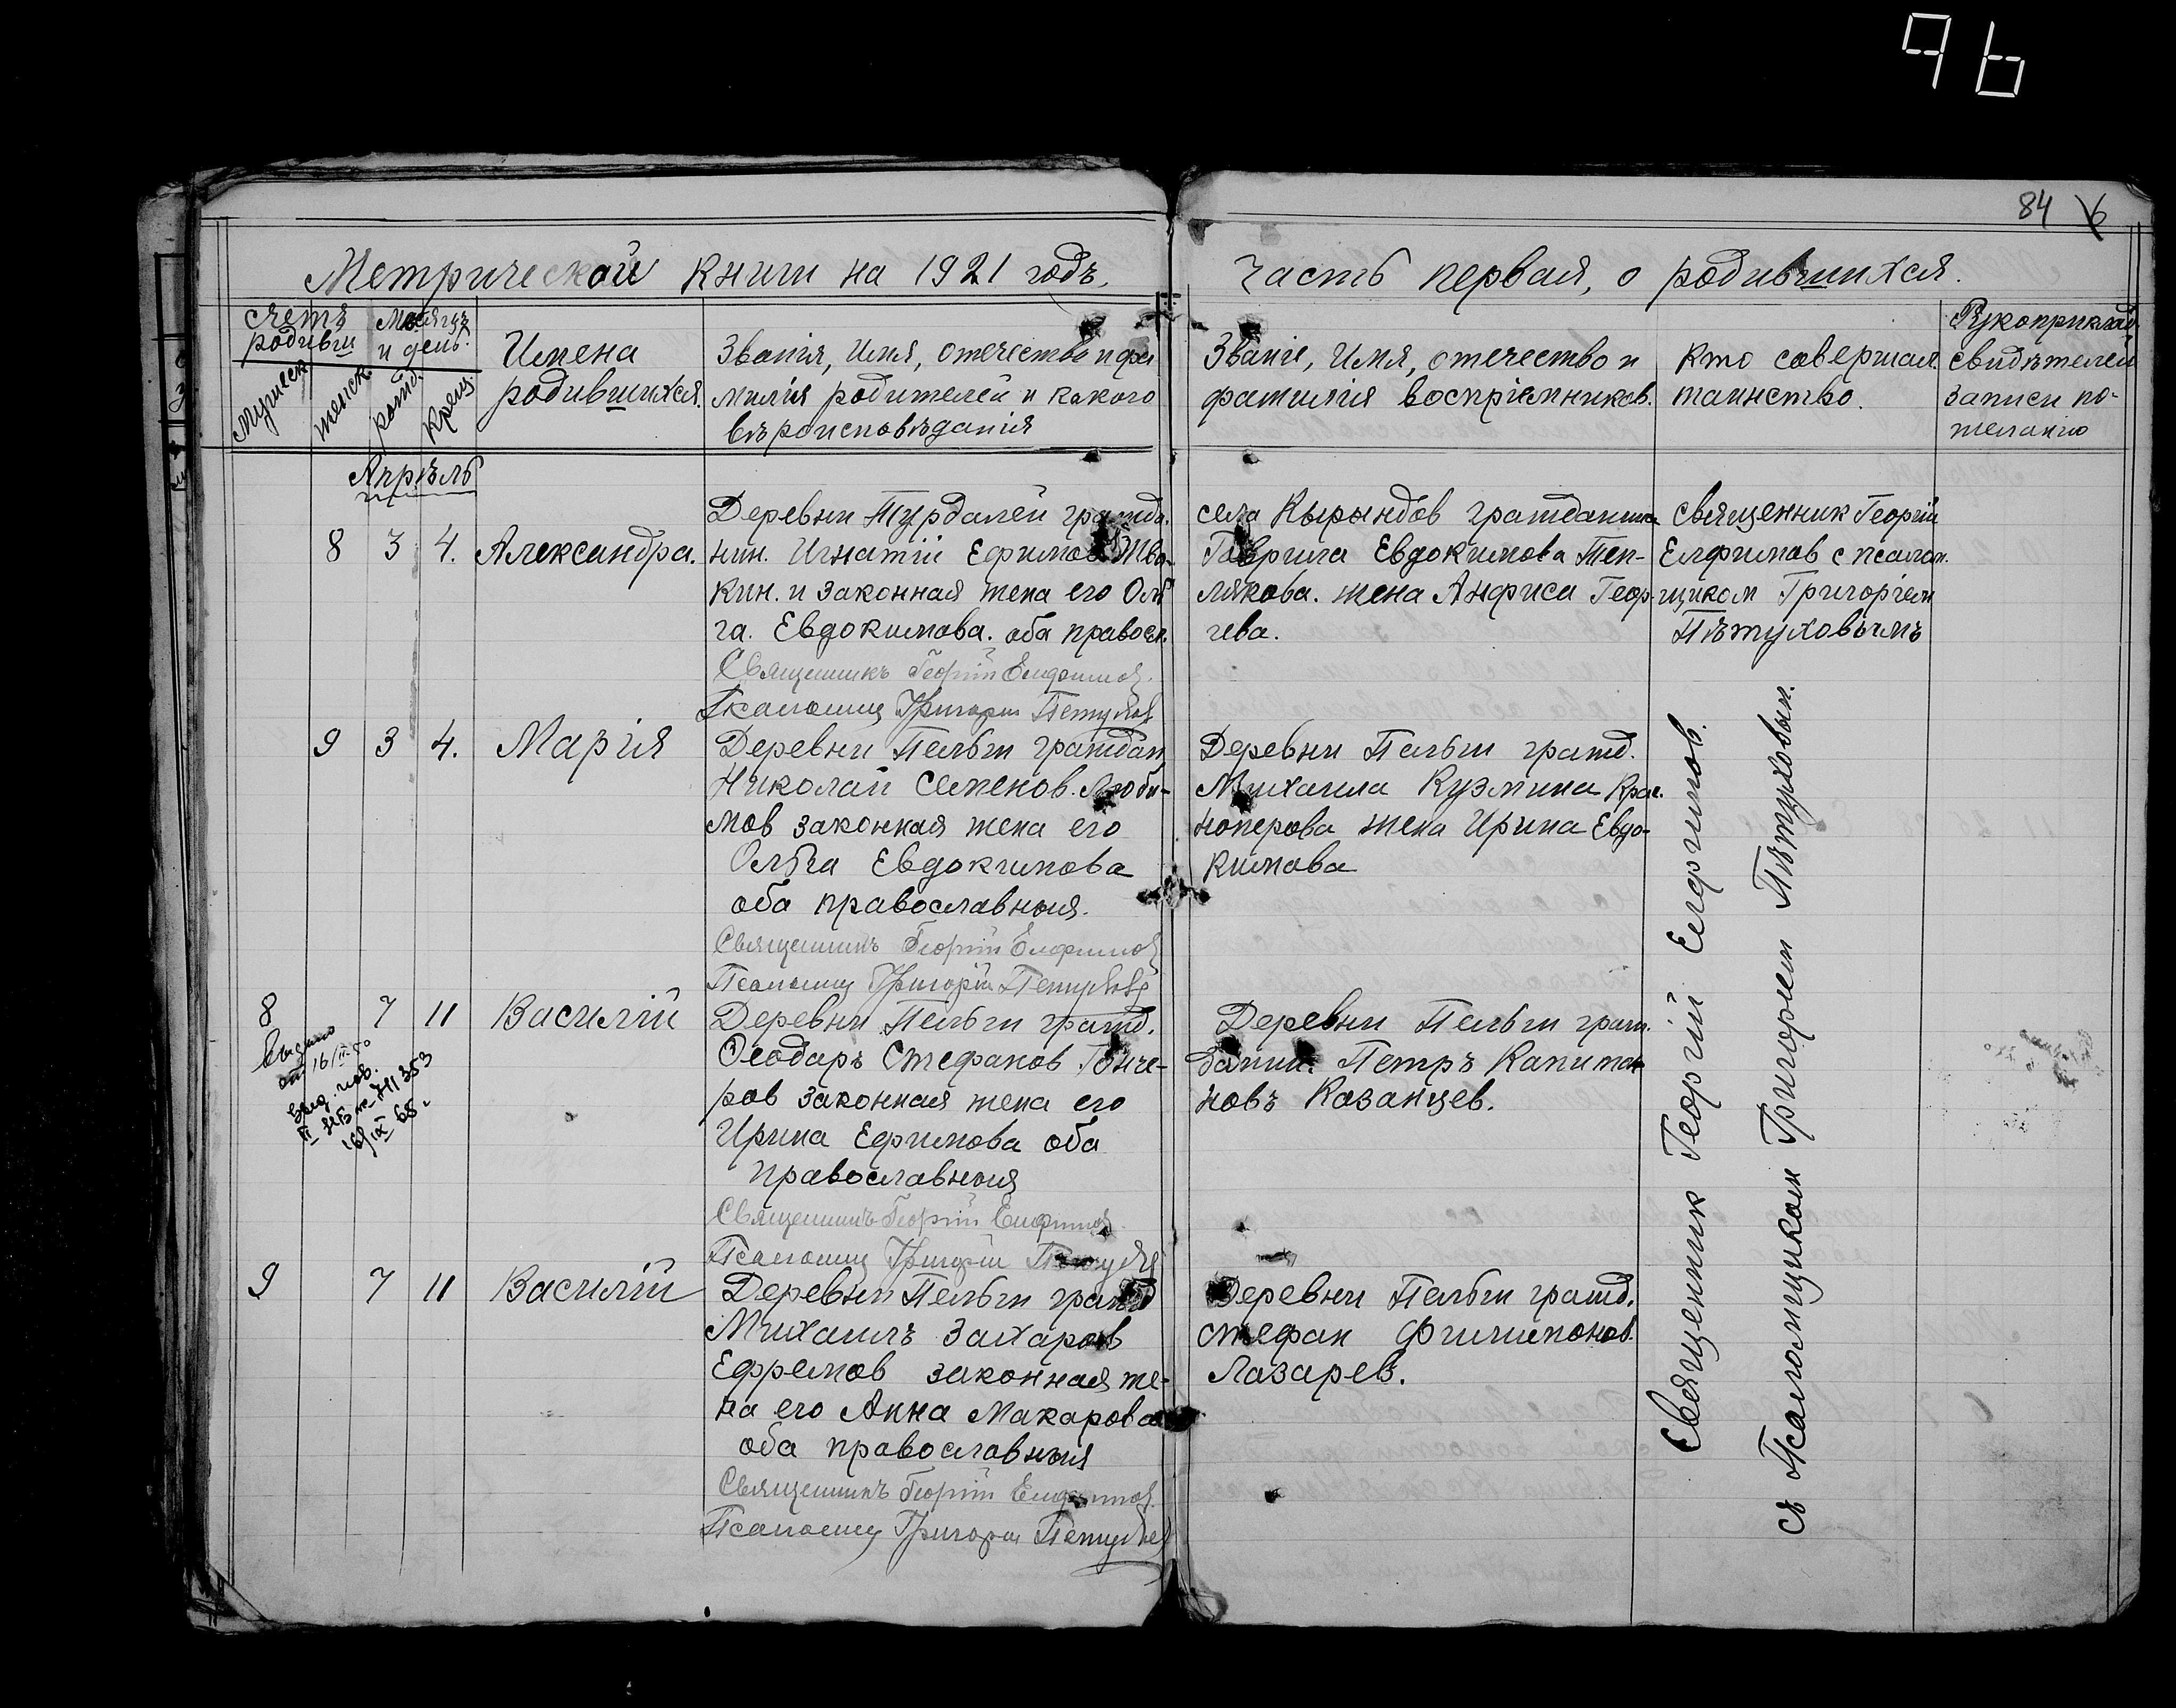 96
84
6
Метрической книги на 1921 годъ.
часть первая, о родившихся.
счетъ родивш
мужеск
женск
Месяцъ и день.
рожд.
крещ.
Имена
родившихся.
Званія, Имя, отечество и фа
милія родителей и какого
вѣроисповѣданія
Званіе, Имя, отечество и
фамилія воспріемников.
Кто совершал.
таинство.
Рукоприклад.
свидѣтелей
записи по-
желанію
Апрѣль
8 3 4. Александра.
Деревни Турдалей гражда.
нин. Игнатій Ефимов
кин. и законная жена его Оль
га. Евдокимова. оба правосл.
Священникъ Георгій Елфимов.
Псаломщ Григорій Петухов
села Кырындов гражданина
Гаврила Евдокимова Теп-
лякова. жена Анфиса Геор-
гева.
священник Георгій
Елфимов с псалом.
щиком Григоріем
Пѣтуховымъ
9 3 4. Марія
Деревни Пельги граждан
Николай Семенов. Люби-
мов законная жена его
Ольга Евдокимова
оба православныя.
Священникъ Георгій Елфимов
Псаломщ Григорій Петухов
Деревни Пельги гражд.
Михаила Кузмина Крас.
ноперова жена Ирина Евдо-
кимова
8 7 11 Василій
16/
353
65.
Деревни Пельги гражд.
Ѳеодаръ Стефанов Гонче-
ров законная жена его
Ирина Ефимова оба
православныя
Священникъ Георгій Елфимов.
Псаломщ Григорій Петухов
Деревни Пельги граж.
данин. Петръ Капитон
новъ Казанцев.
9 7 11 Василій
Деревни Пельги гражд
Михаилъ Захаров
Ефремов законная же-
на его Анна Макарова
оба православныя
Священникъ Георгій Елфимов.
Псаломщ Григорій Петухов
Деревни Пельги гражд.
стефан Филимонов.
Лазарев.
Священник Георгій Елфимов.
съ Псаломщиком Григорием Пѣтуховым.